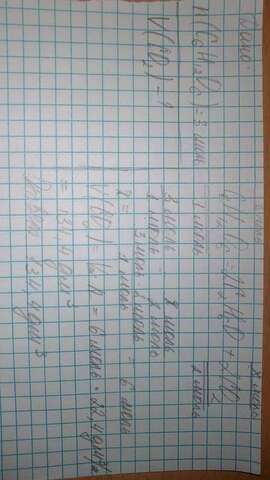 Дано:
n(C6H12O6) = 3 моль
V(CO2) - ?
3 моль x моль
C6H12O6 = 2C2H5OH + 2CO2
1 моль 2 моль
3 моль x моль
1 моль 2 моль
x = 3 моль · 2 моль = 6 моль
1 моль
V(CO2) = 6 моль · 22,4 дм3/моль
= 134,4 дм3
Ответ: 134,4 дм3